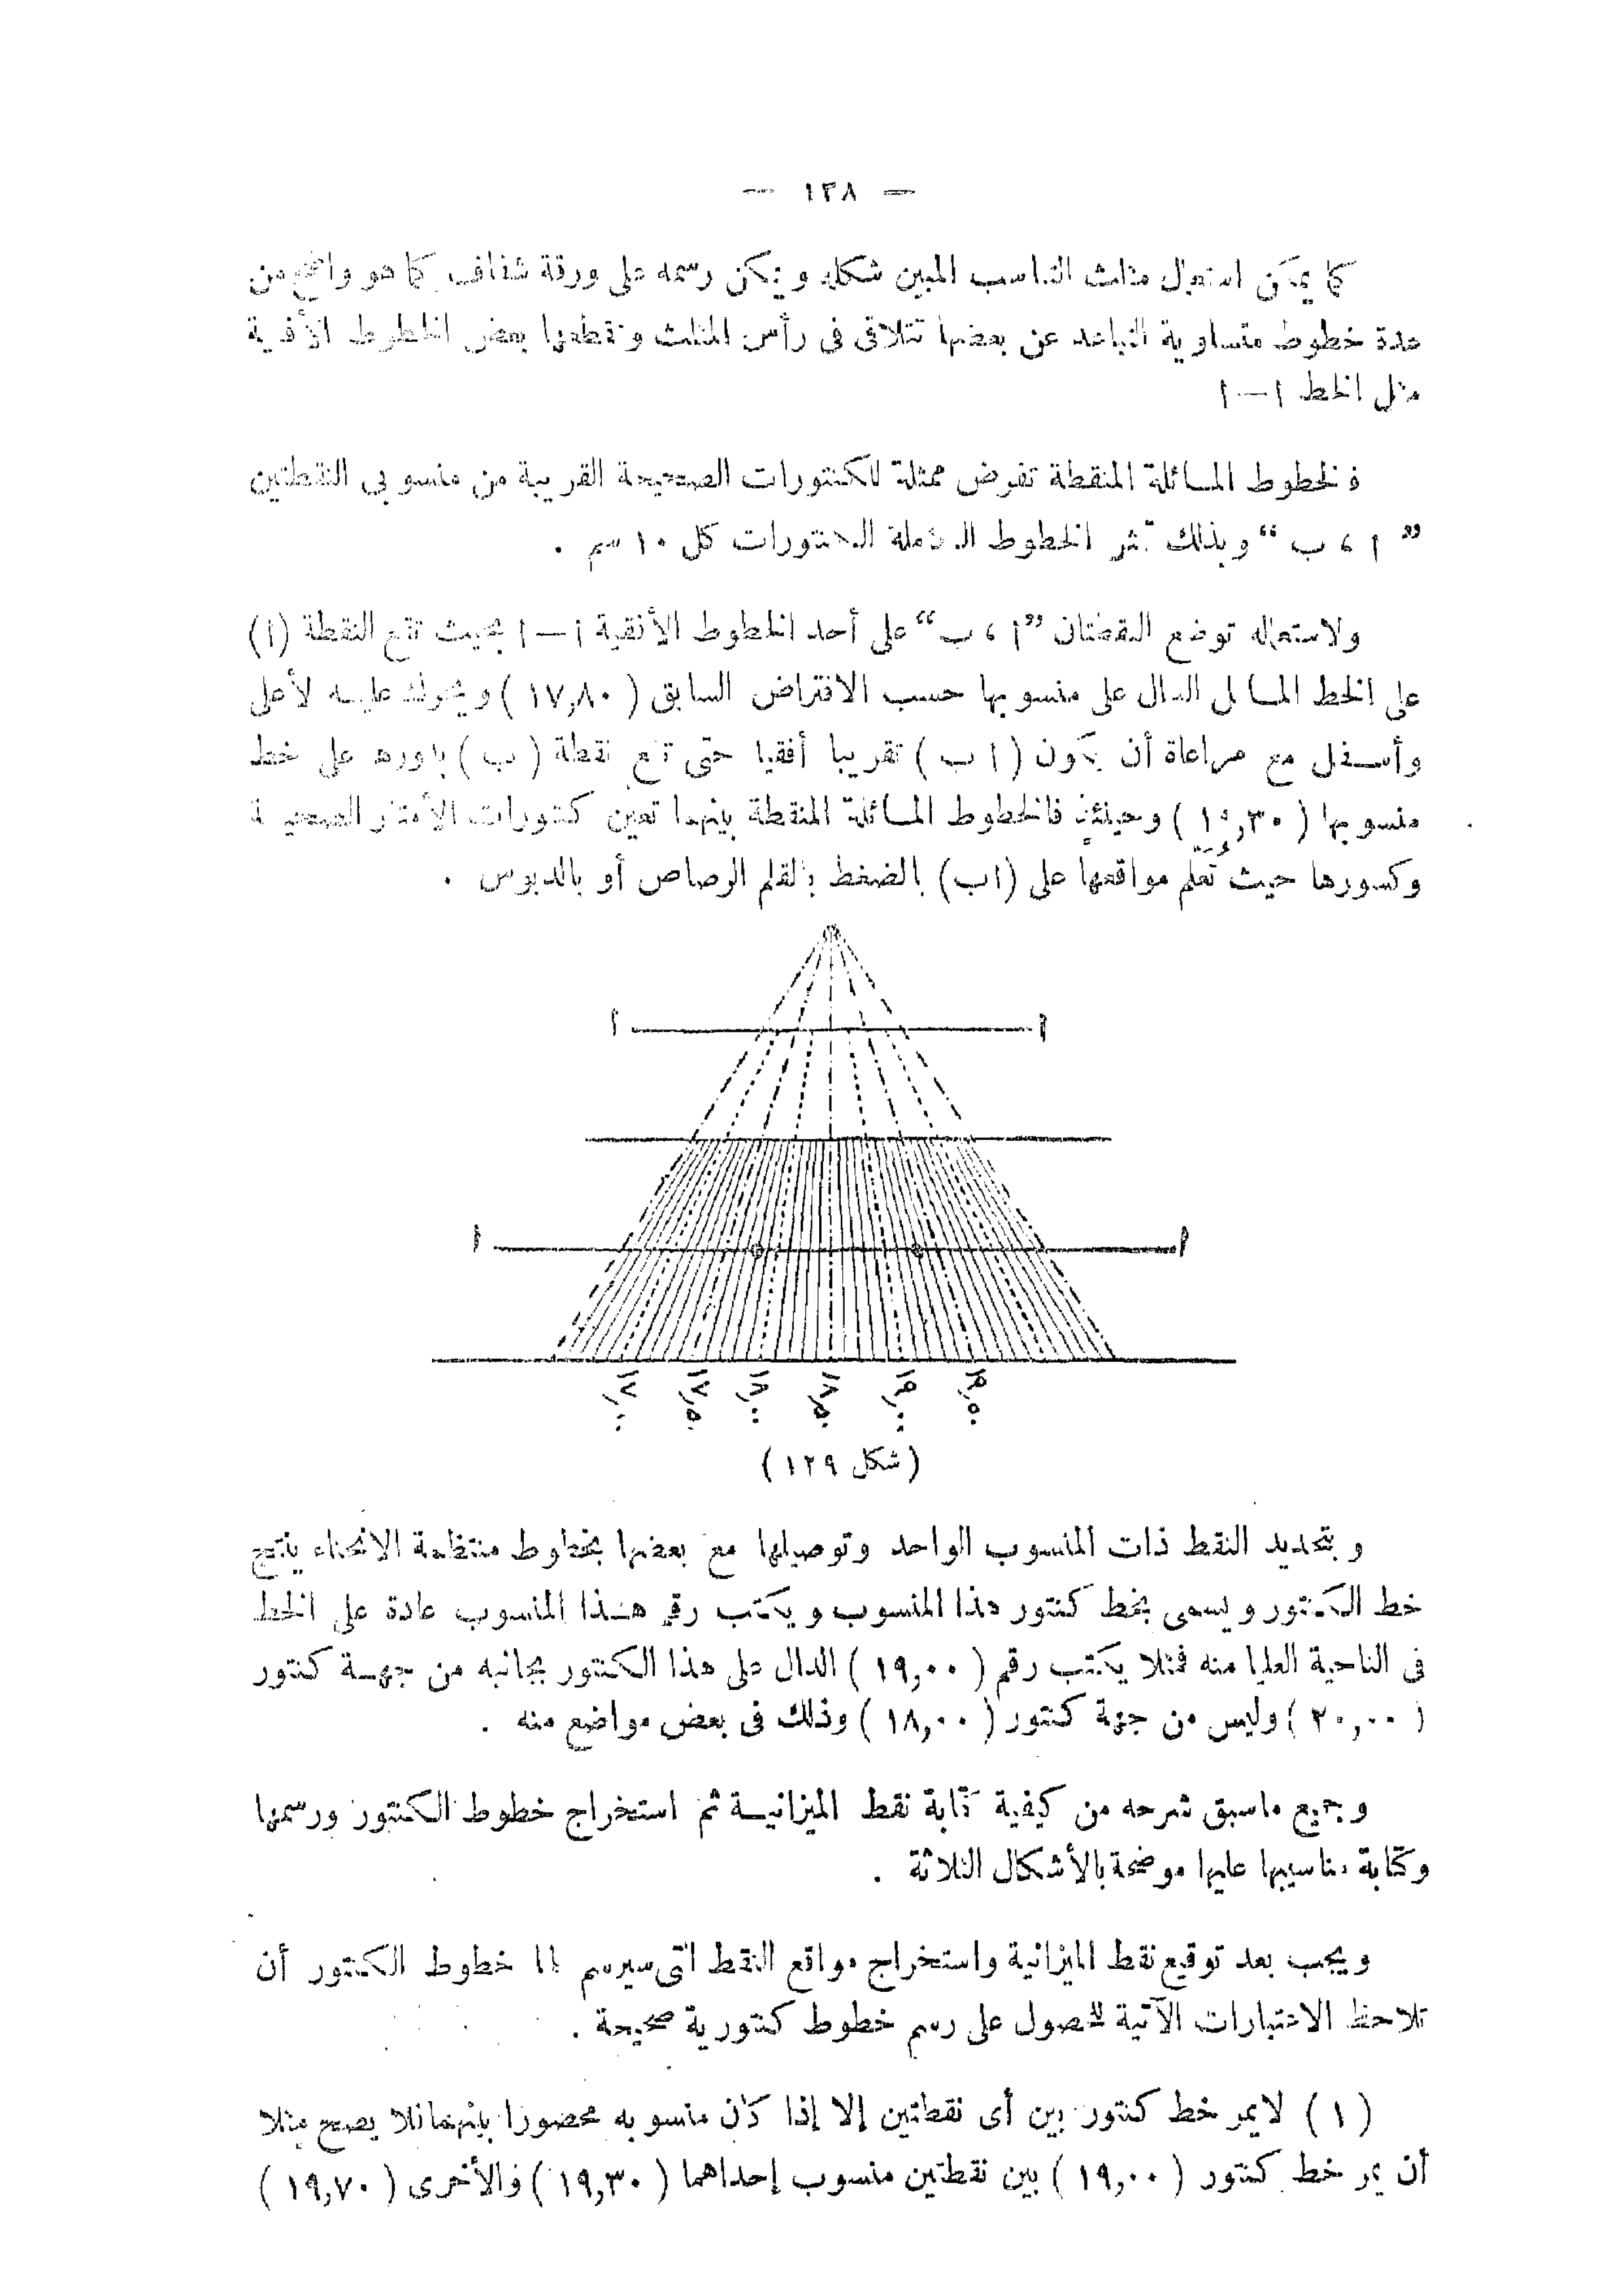 — ١٣٨ —
كما يمكن استعمال مثلث التناسب المبين شكله ويمكن رسمه على ورقة شفاف كما هو واضح من
عدة خطوط متساوية التباعد عن بعضها تتلاقى فى رأس المثلث وتقطعها بعض الخطوط الأفقية
مثل الخط ا — ا
فالخطوط المائلة المنقطة تفرض ممثلة للكنتورات الصحيحة القريبة من منسوبى النقطتين
” ا ، ب “ وبذلك الخطوط الكنتورات كل ١٠ سم .
ولاستعماله توضع النقطتان ” ا ، ب “ على أحد الخطوط الأفقية ا — ا بحيث تقع النقطة (ا)
على الخط المائل الدال على منسوبها حسب الافتراض السابق ( ١٧,٨٠ ) ويحرك عليه لأعلى
وأسفل مع مراعاة أن يكون ( ا ب ) تقريبا أفقيا حتى تقع نقطة ( ب ) بدورها على خط
منسوبها وحينئذ فالخطوط المائلة المنقطة بينهما تعين كنتورات الأمتار الصحيحة
وكسورها حيث تُعلَّم مواقعها على (اب) بالضغط بالقلم الرصاص أو بالدبوس .
ا ا
ا ا
١٧,٠٠ ١٧,٥٠ ١٨,٠٠ ١٨,٥٠ ١٩,٠٠ ١٩,٥٠
( شكل ١٢٩ )
وبتحديد النقط ذات المنسوب الواحد وتوصيلها مع بعضها بخطوط منتظمة الانحناء ينتج
خط الكنتور ويسمى بخط كنتور هذا المنسوب ويكتب رقم هذا المنسوب عادة على الخط
فى الناحية العليا منه فمثلا يكتب رقم ( ١٩,٠٠ ) الدال على هذا الكنتور بجانبه من جهة كنتور
( ٢٠,٠٠ ) وليس من جهة كنتور ( ١٨,٠٠ ) وذلك فى بعض مواضع منه .
وجميع ماسبق شرحه من كيفية كتابة نقط الميزانية ثم استخراج خطوط الكنتور ورسمها
وكتابة مناسيبها عليها موضحة بالأشكال الثلاثة .
ويجب بعد توقيع نقط الميزانية واستخراج مواقع النقط التى سيرسم بها خطوط الكنتور أن
تلاحظ الاعتبارات الآتية للحصول على رسم خطوط كنتورية صحيحة .
( ١ ) لايمر خط كنتور بين أى نقطتين إلا إذا كان منسوبه محصورا بينهما فلا يصح مثلا
أن يمر خط كنتور ( ١٩,٠٠ ) بين نقطتين منسوب إحداهما ( ١٩,٣٠ ) والأخرى ( ١٩,٧٠ )